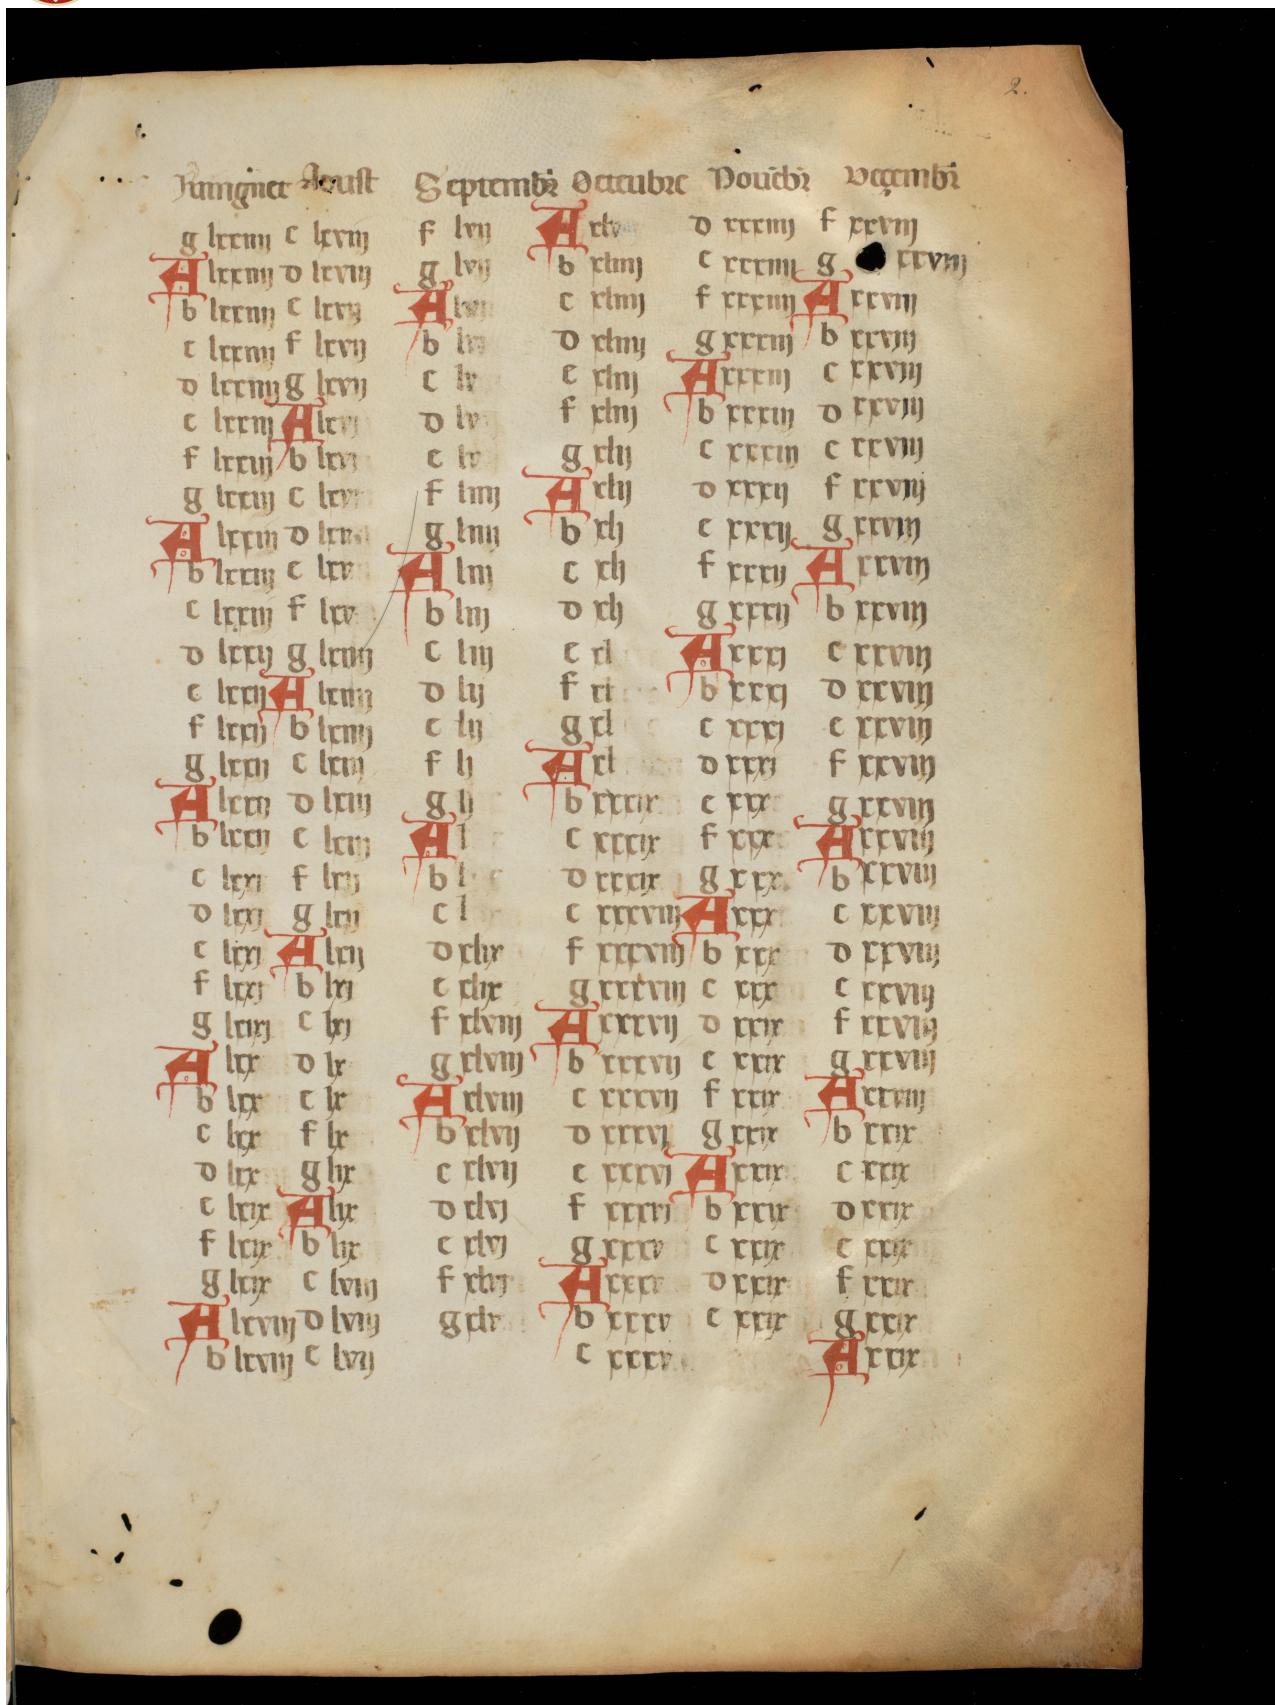 Juingnet Aoust Septembr Octeubre Novebr Decembr
g lxxiiij c lxviij f lvij A xlv d xxxiiij f xxviij
A lxxiiij d lxviij g lvij b xliiij e xxxiiij g xxviij
b lxxiiij e lxvij A lvj c xliiij f xxxiiij A xxviij
c lxxiiij f lxvij b lv d xliiij g xxxiij b xxviij
d lxxiiij g lxvij c lv e xliij A xxxiij c xxviij
e lxxiij A lxvj d lv f xliij b xxxiij d xxviij
f lxxiij b lxvj e lv g xlij c xxxiij e xxviij
g lxxiij c lxvj f liiij A xlij d xxxij f xxviij
A lxxiij d lxv g liiij b xlj e xxxij g xxviij
b lxxiij e lxv A liij c xlj f xxxij A xxviij
c lxxiij f lxv b liij d xlj g xxxij b xxviij
d lxxij g lxiiij c liij e xl A xxxj c xxviij
e lxxij A lxiiij d lij f xl b xxxj d xxviij
f lxxij b lxiiij e lij g xl c xxxj e xxviij
g lxxij c lxiij f lj A xl d xxxj f xxviij
A lxxij d lxiij g lj b xxxix e xxx g xxviij
b lxxij e lxiij A l c xxxix f xxx A xxviij
c lxxj f lxij b l d xxxix g xxx b xxviij
d lxxj g lxij c l e xxxviij A xxx c xxviij
e lxxj A lxij d xlix f xxxviij b xxx d xxviij
f lxxj b lxj e xlix g xxxviij c xxx e xxviij
g lxxj c lxj f xlviij A xxxvij d xxix f xxviij
A lxx d lx g xlviij b xxxvij e xxix g xxviij
b lxx e lx A xlviij c xxxvij f xxix A xxviij
c lxx f lx b xlvij d xxxvj g xxix b xxix
d lxx g lix c xlvij e xxxvj A xxix c xxix
e lxix A lix d xlvj f xxxvj b xxix d xxix
f lxix b lix e xlvj g xxxv c xxix e xxix
g lxix c lviij f xlvj A xxxv d xxix f xxix
A lxviij d lviij g xlv b xxxv e xxix g xxix
b lxviij e lvij c xxxv A xxix
2.